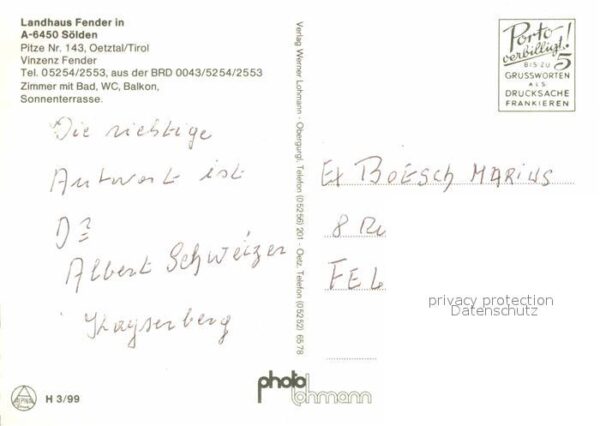 Landhaus Fender in
A-6450 Sölden
Pitze Nr. 143, Oetztal/Tirol
Vinzenz Fender
Tel. 05254/2553, aus der BRD 0043/5254/2553
Zimmer mit Bad, WC, Balkon,
Sonnenterrasse.
Die richtige
Antwort ist
Albert Schweizer
Kayserberg
H 3/99
Verlag Werner Lohmann - Obergurgl, Telefon (05256) 201 - Oetz, Telefon (05252) 6578
photo
lohmann
Porto
verbilligt!
BIS ZU 5
GRUSSWORTEN
ALS
DRUCKSACHE
FRANKIEREN
BOESCH MARIUS
8 Ru
FEL
privacy protection
Datenschutz